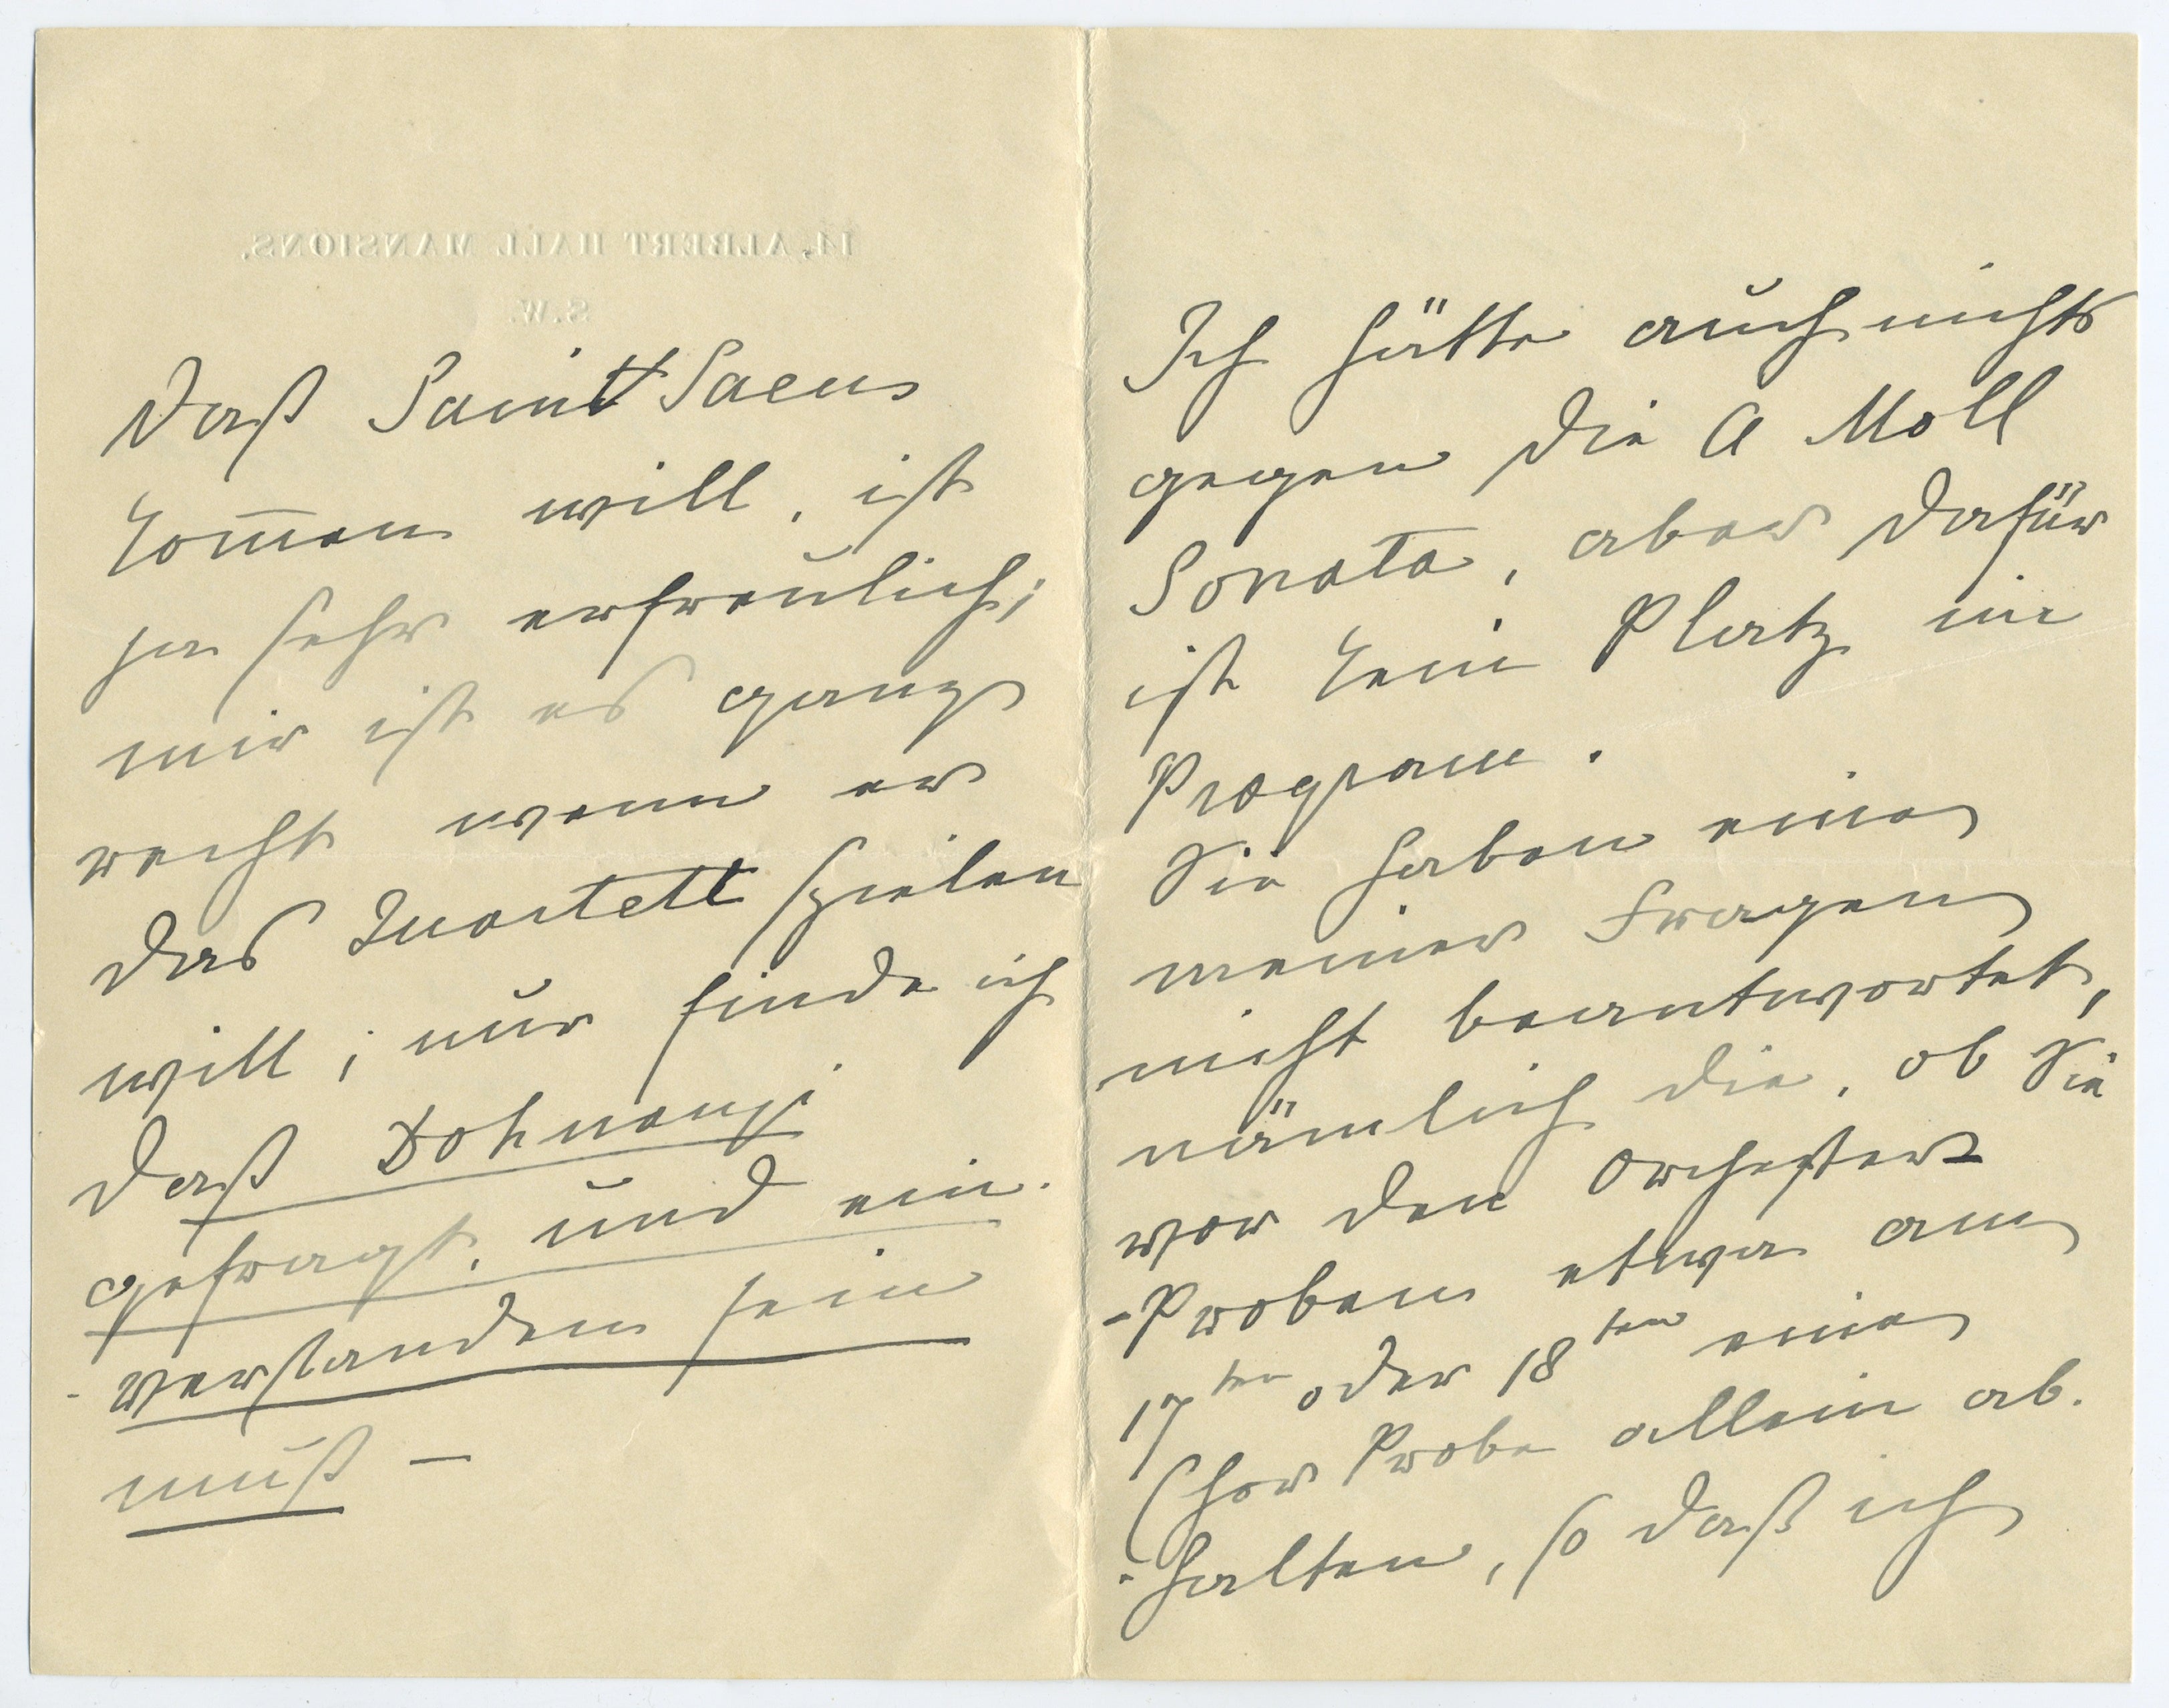 14, ALBERT HALL MANSIONS.
S.W.
daß Saint Saens
kom̅en will, ist
ja sehr erfreulich;
mir ist es ganz
recht wenn er
das Quartett spielen
will; nur finde ich
daß Dohnanyi
gefragt, und ein-
-verstanden sein
muß —
Ich hätte auch nichts
gegen die A Moll
Sonate, aber dafür
ist kein Platz im
Program.
Sie haben eine
meiner Fragen
nicht beantwortet,
nämlich die, ob Sie
vor den Orchester
-Proben etwa am
17ten oder 18ten eine
Chor Probe allein ab-
-halten, so daß ich